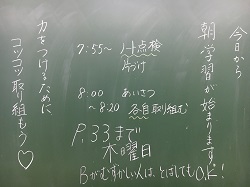 今日から
朝学習が始まります。
7:55〜 ノート点検
片づけ
8:00 あいさつ
〜8:20 各自取り組む
P.33まで
木曜日
Bがむずかしい人は、とばしてもO.K!
力をつけるために
コツコツ取り組もう♡